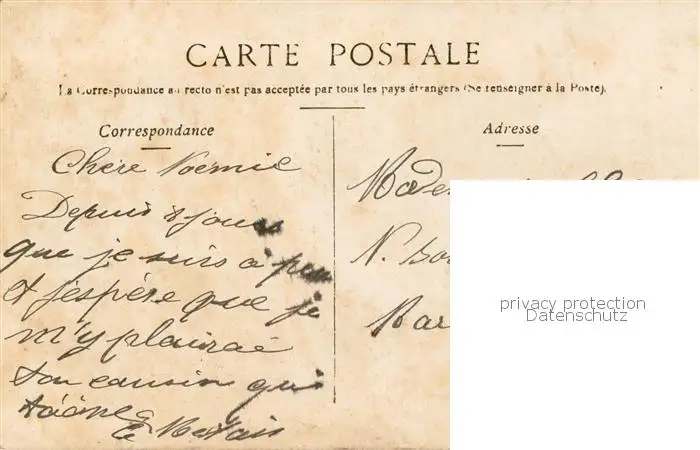 CARTE POSTALE
La Correspondance au recto n'est pas acceptée par tous les pays étrangers (Se renseigner à la Poste).
Correspondance
Adresse
Chère Noémie
Depuis 8 jours
que je suis à
et j'espère que je
m'y plairai
ton cousin qui
t'aime
E
N.
Bar
privacy protection
Datenschutz